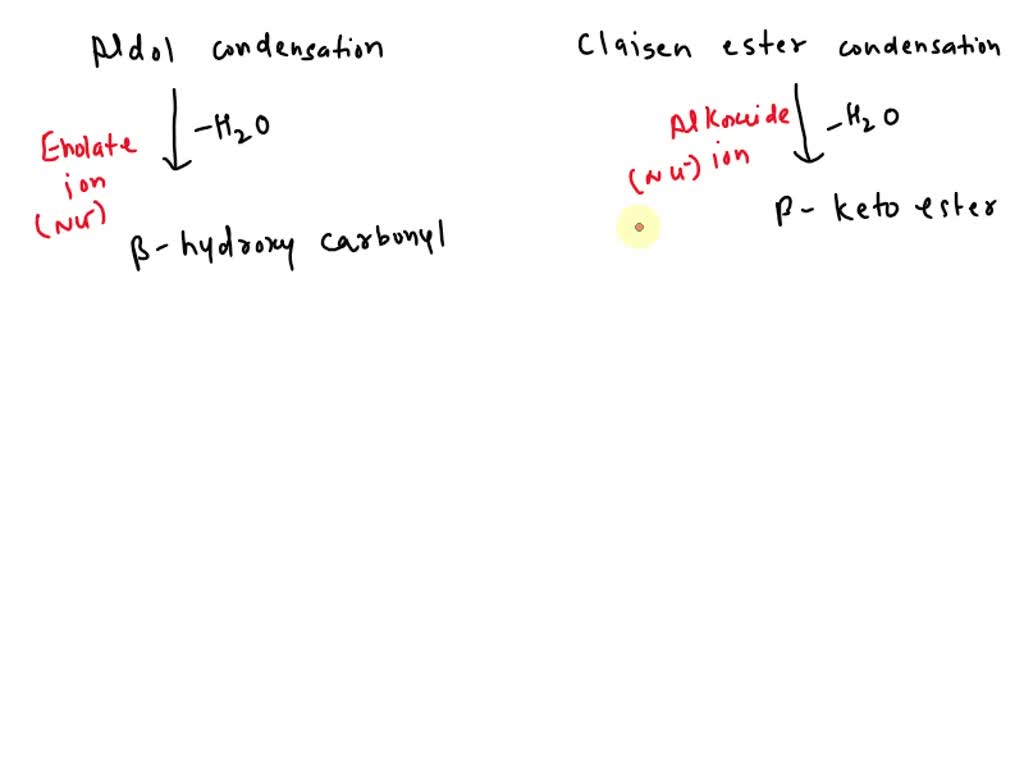 Aldol condensation
-H2O
Enolate
ion
(Nu-)
β-hydroxy carbonyl
Claisen ester condensation
-H2O
Alkoxide
(Nu-) ion
β- keto ester